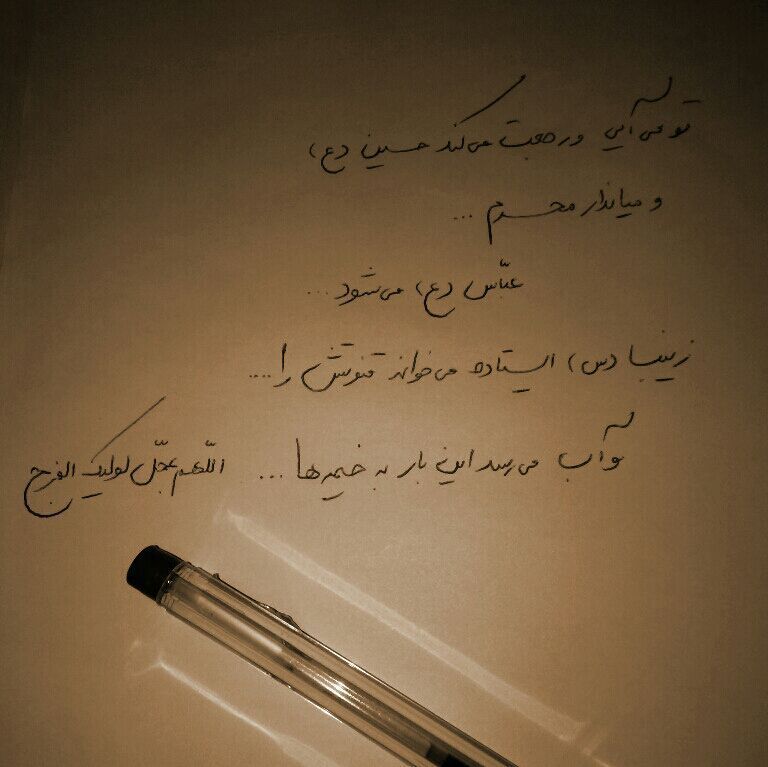 تو می آیی و رجعت می کند حسین (ع)
و میاندار محرم ...
عبّاس (ع) می شود ...
زینب (س) ایستاده می خواند قنوتش را ....
و آب می رسد این بار به خیمه ها ... اللّهم عجّل لولیک الفرج